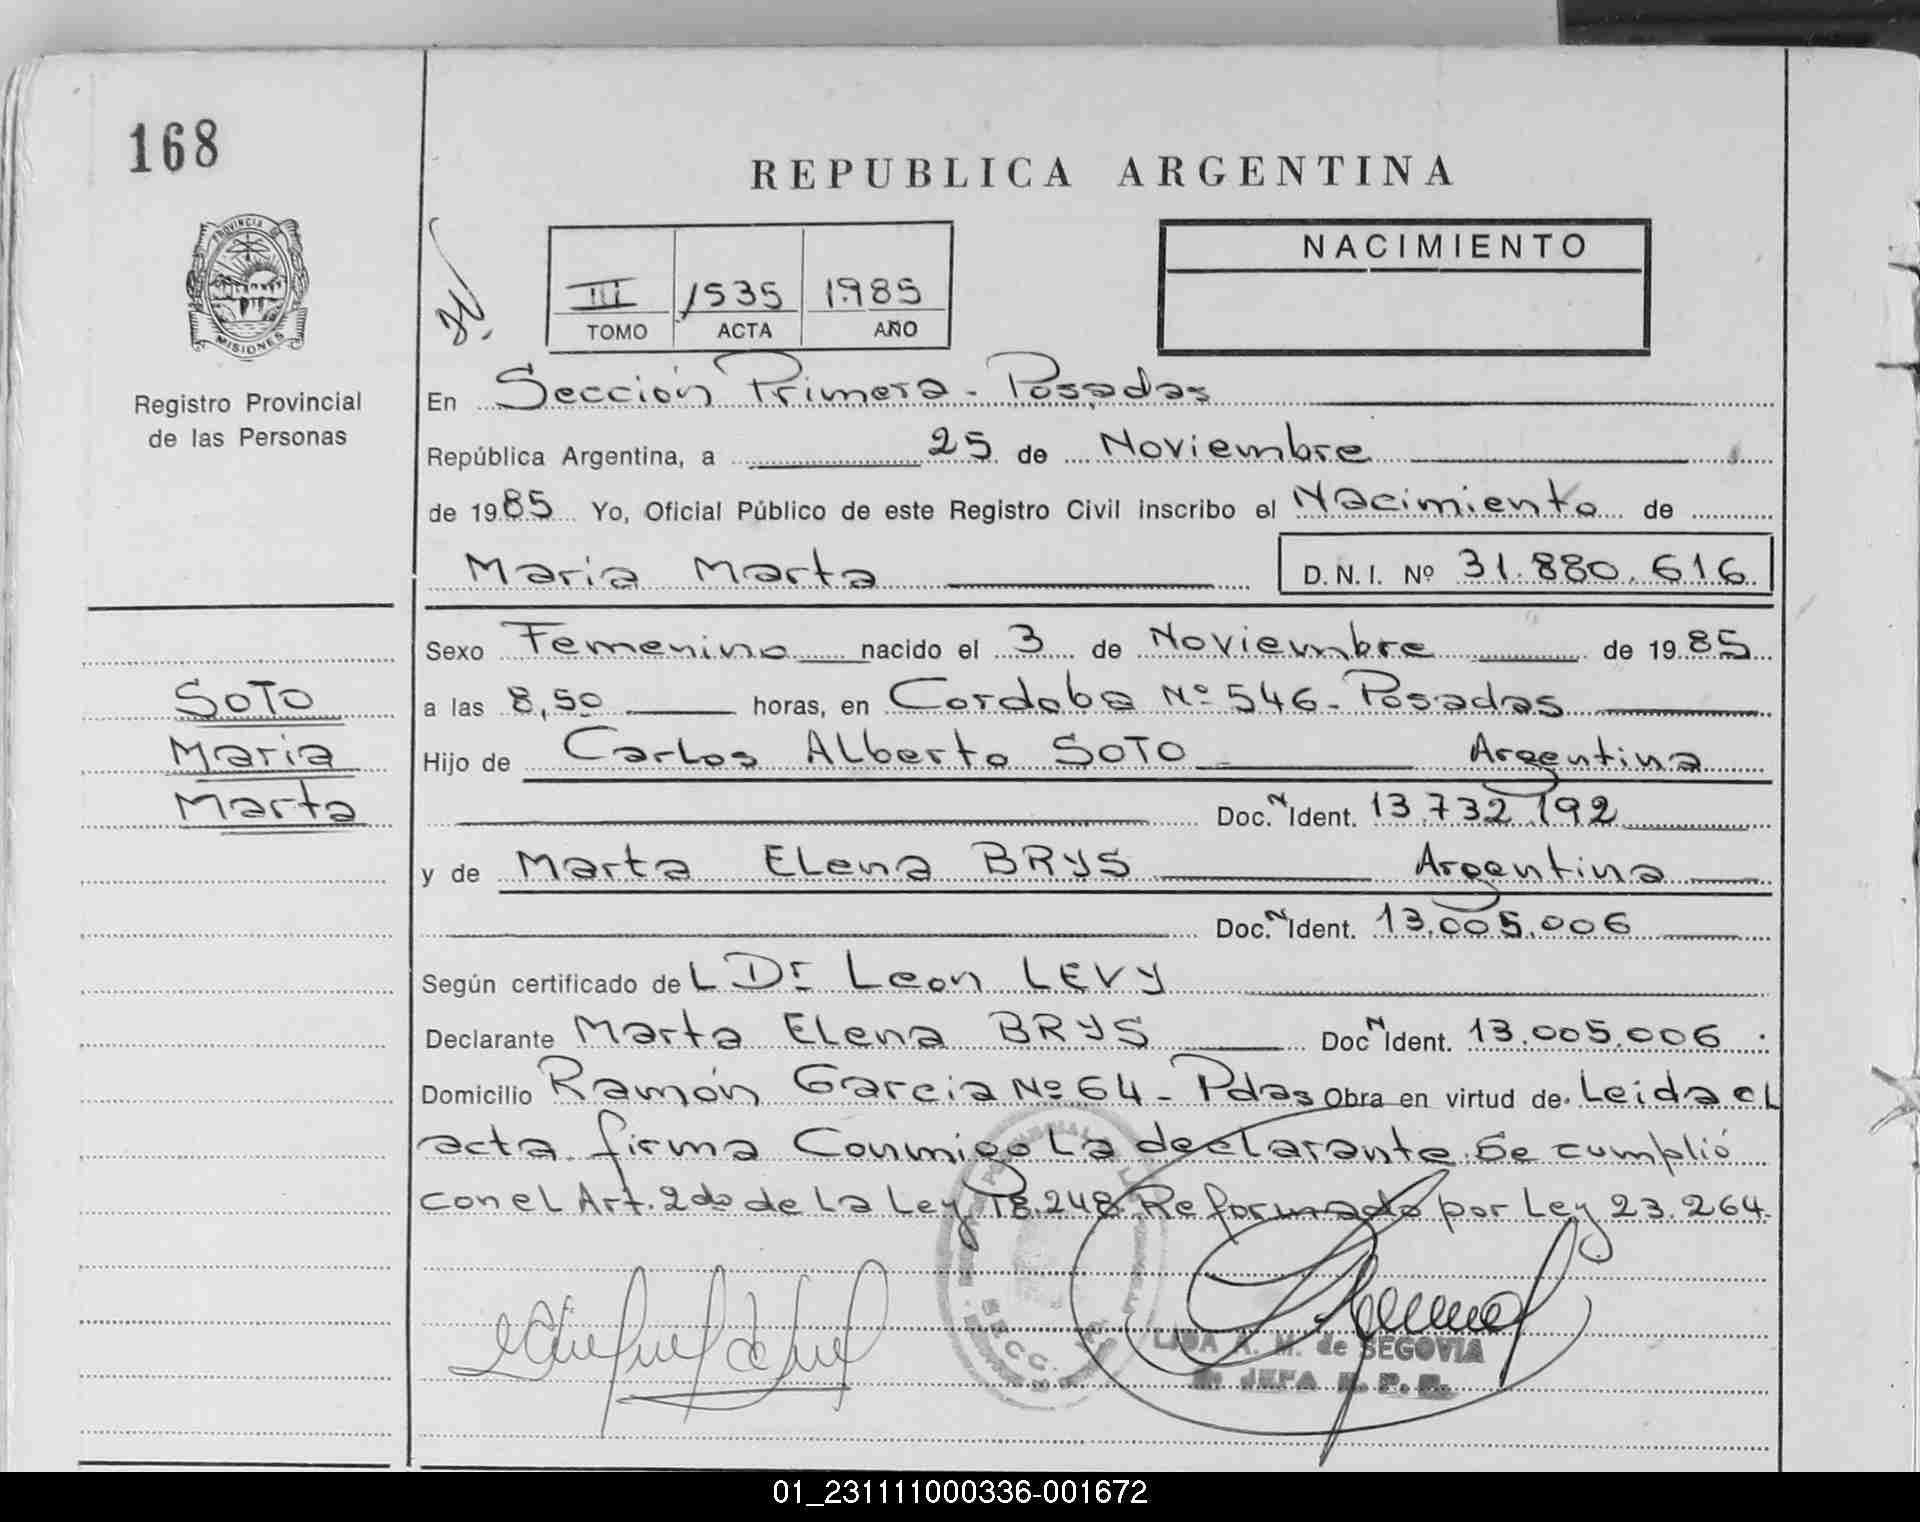 168
REPUBLICA ARGENTINA
PROVINCIA DE
MISIONES
Registro Provincial
de las Personas
III 1535 1985
TOMO ACTA AÑO
NACIMIENTO
En Sección Primera - Posadas
República Argentina, a 25 de Noviembre
de 1985 Yo, Oficial Público de este Registro Civil inscribo el Nacimiento de
Maria Marta D.N.I. Nº 31.880.616
SOTO
Maria
Marta
Sexo Femenino nacido el 3 de Noviembre de 1985
a las 8,50 horas, en Cordoba Nº 546 - Posadas
Hijo de Carlos Alberto SOTO Argentina
Doc. N Ident. 13.732.192
y de Marta Elena BRYS Argentina
Doc. N Ident. 13.005.006
Según certificado del Dr Leon LEVY
Declarante Marta Elena BRYS Doc N Ident. 13.005.006.
Domicilio Ramón Garcia Nº 64 - Pdas Obra en virtud de. Leida el
acta firma Conmigo La declarante. Se cumplió
con el Art. 2do de La Ley 18.248. Reformado por Ley 23.264.
SECC.
LIDA A. M. de SEGOVIA
JEFA R. P. P.
01_231111000336-001672